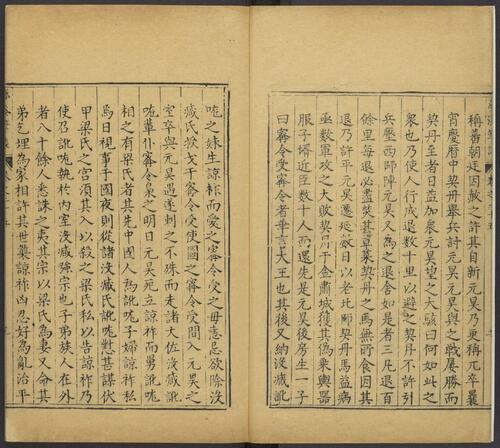 稱蕃朝廷因赦之許其自新元昊乃更稱兀卒曩
宵慶曆中契丹舉兵討元昊元昊與之戰屢勝而
契丹至者日益加衆元昊望之大駭曰何如此之
衆也乃使人行成退數十里以避之契丹不許引
兵壓西師陣元昊又為之退舍如是者三凡退百
餘里每退必盡焚其草萊契丹之馬無所食因其
退乃許平元昊遷延數日以老北師契丹馬益病
亟發軍攻之大敗契丹于金肅城獲其偽乘輿器
服子壻近臣數十人而還先是元昊後房生一子
曰甯令受甯令受者華言大王也其後又納沒臧訛
咙之妹生諒祚而愛之甯令受之母恚忌欲除沒
臧氏授戈于甯令受使圖之甯令受間入元昊之
室卒與元昊遇遂刺之不殊而走諸大佐沒臧訛
咙輩仆甯令梟之明日元昊死立諒祚而舅訛咙
相之有梁氏者其先中國人為訛咙子婦諒祚私
焉日視事于國夜則從諸沒臧訛咙懟甚謀伏
甲梁氏之宮須其入以殺之梁氏私以告諒祚乃
使召訛咙執於内室沒臧強宗也子弟族人在外
者八十餘人悉誅之夷其宗以梁氏為妻又命其
弟乞埋為家相許其世襲諒祚凶忍好為亂治平